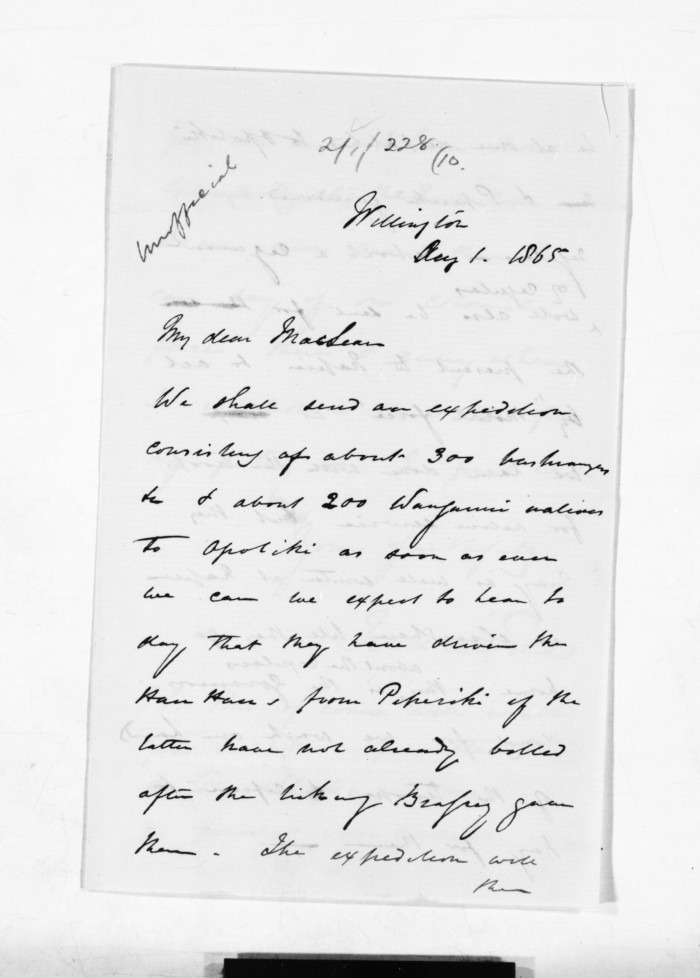 2/1/228/10.
Unofficial
Wellington
Aug 1. 1865
My dear MacLean
We shall send an expedition
consisting of about 300 bushrangers
&c & about 200 Wanganui natives
to Opotiki as soon as ever
we can we expect to hear to
day that they have driven the
Hau Haus from Pipiriki if the
latter have not already bolted
after the licking Brassey gave
them. The expedition will
then